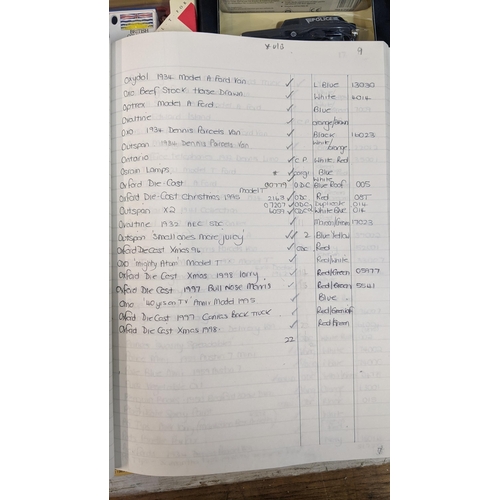 POLICE
BRITISH
9
Oxydol 1934 Model A Ford Van ✓ L. Blue 13030
Oxo Beef Stock Horse Drawn ✓ White 4014
Optrex Model A Ford ✓ Blue
Ovaltine ✓ orange/Brown
Oxo 1934 Dennis Parcels Van ✓ Black 14023
Outspan 1934 Dennis Parcels Van. ✓ White/orange
Ontario ✓ C.P White Red
Osram Lamps. * ✓ corgi Blue White
Oxford Die-Cast Model T 00779 ODC Blue Roof 005
Oxford Die-Cast Christmas 1995 2163 ✓ ODC Red
Outspan X2 ✓ White Blue 016
Ovaltine 1932 AEC ✓ 17023
Outspan 'Small ones more juicy' ✓ 2 Blue Yellow
Oxford Die Cast Xmas 96 ✓ ODC Red
Oxo 'mighty Atom' Model T ✓ Red/white
Oxford Die Cast Xmas 1998 lorry. ✓ Red/Green 05977
Oxford Die Cast 1997 Bull Nose Morris ✓ Red/Green 5541
Omo '40 yrs on TV' Anniv Model 1995 ✓ Blue
Oxford Die Cast 1997 Canvas Back Truck ✓
Oxford Die Cast Xmas 1998. ✓ Red/Green
22